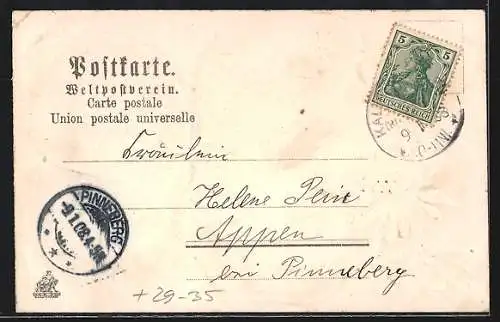 Postkarte.
Weltpostverein.
Carte postale
Union postale universelle
5 5
DEUTSCHES REICH
Fräulein
Helene Pein
Appen
bei Pinneberg
PINNEBERG
+29-35